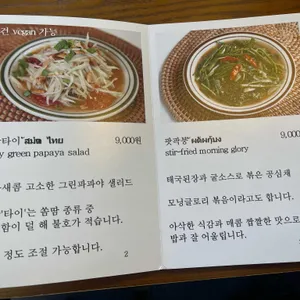 건 vegan 가능
타이" ส้มตำ ไทย 9,000원
y green papaya salad
새콤 고소한 그린파파야 샐러드
타이'는 쏨땀 종류 중
함이 덜 해 불호가 적습니다.
정도 조절 가능합니다.
2
팟팍붕' 9,000
stir-fried morning glory
태국된장과 굴소스로 볶은 공심채
모닝글로리 볶음이라고도 합니다.
아삭한 식감과 매콤 짭짤한 맛으로
밥과 잘 어울립니다.